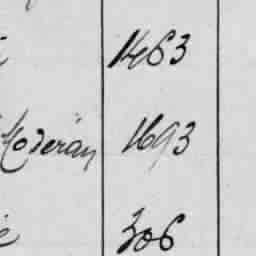 1463
Moderan 1693
306